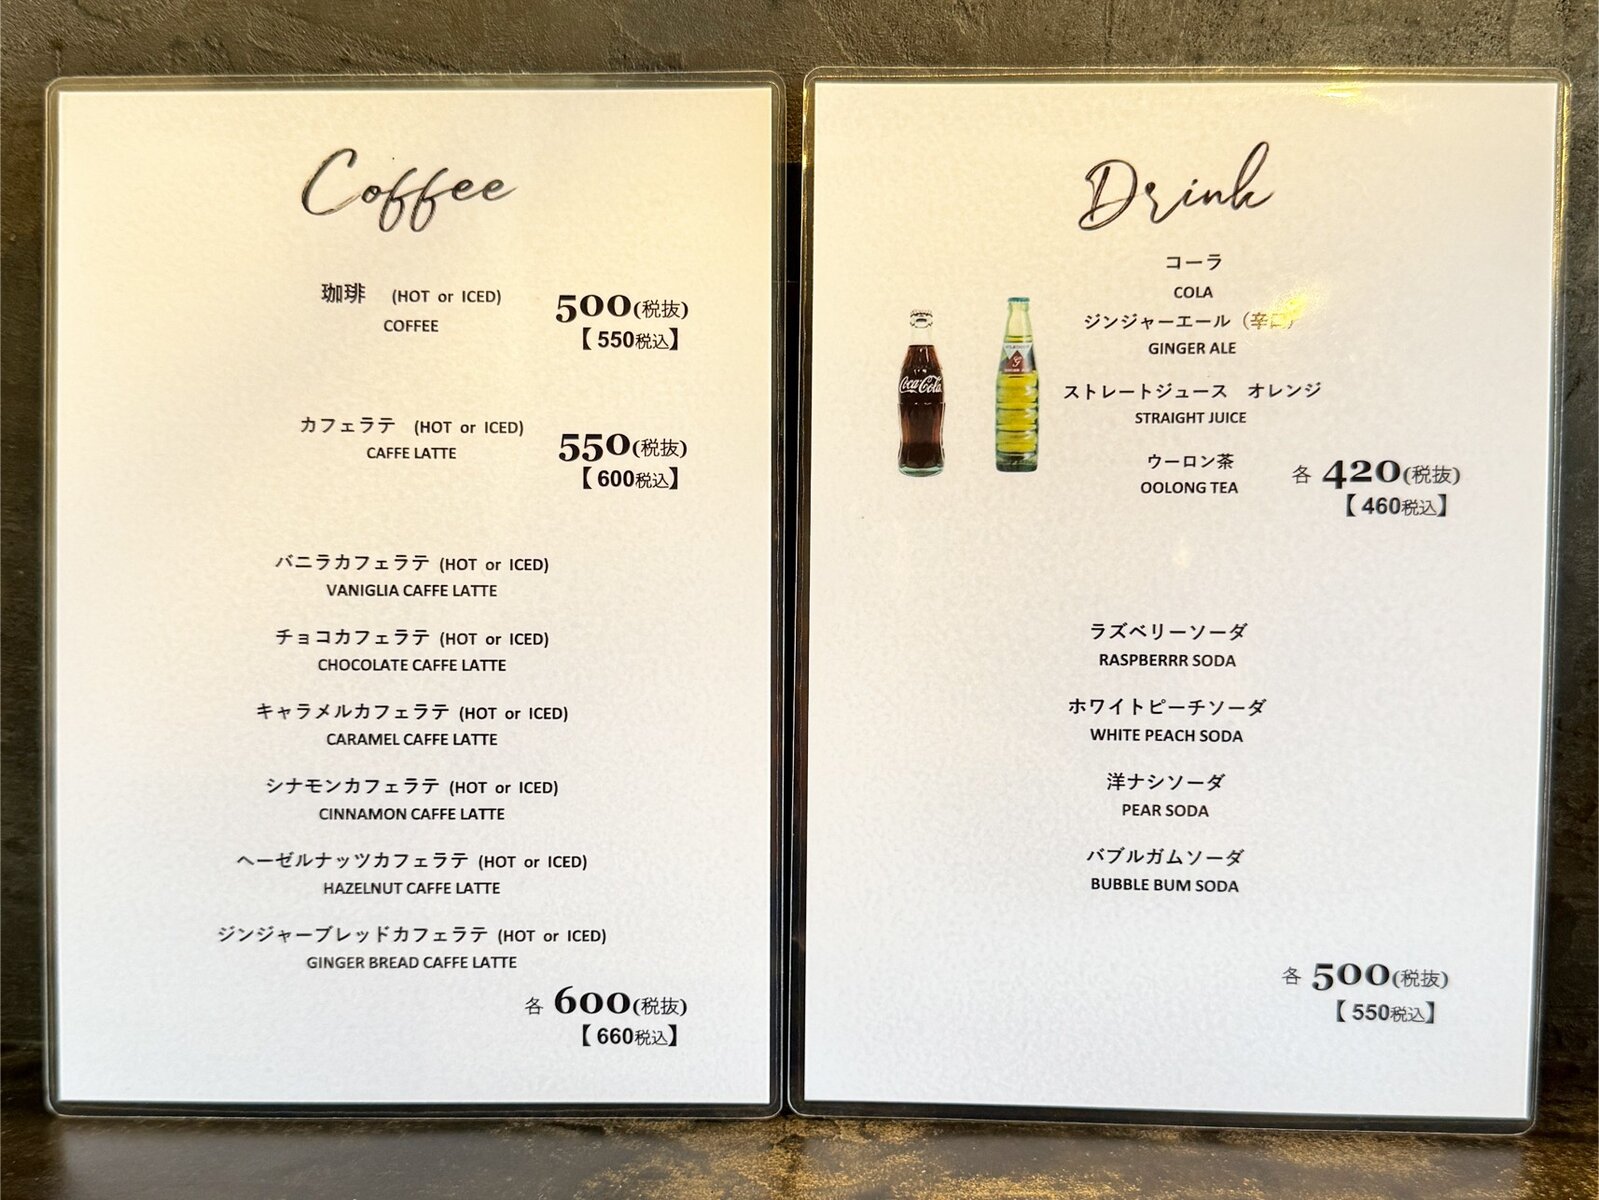 Coffee
珈琲 (HOT or ICED)
COFFEE
500(税抜)
【550税込】
カフェラテ (HOT or ICED)
CAFFE LATTE
550(税抜)
【600税込】
バニラカフェラテ (HOT or ICED)
VANIGLIA CAFFE LATTE
チョコカフェラテ (HOT or ICED)
CHOCOLATE CAFFE LATTE
キャラメルカフェラテ (HOT or ICED)
CARAMEL CAFFE LATTE
シナモンカフェラテ (HOT or ICED)
CINNAMON CAFFE LATTE
ヘーゼルナッツカフェラテ (HOT or ICED)
HAZELNUT CAFFE LATTE
ジンジャーブレッドカフェラテ (HOT or ICED)
GINGER BREAD CAFFE LATTE
各 600(税抜)
【660税込】
Drink
コーラ
COLA
ジンジャーエール（辛口）
GINGER ALE
Coca-Cola
ストレートジュース オレンジ
STRAIGHT JUICE
ウーロン茶
OOLONG TEA
各 420(税抜)
【460税込】
ラズベリーソーダ
RASPBERRR SODA
ホワイトピーチソーダ
WHITE PEACH SODA
洋ナシソーダ
PEAR SODA
バブルガムソーダ
BUBBLE BUM SODA
各 500(税抜)
【550税込】